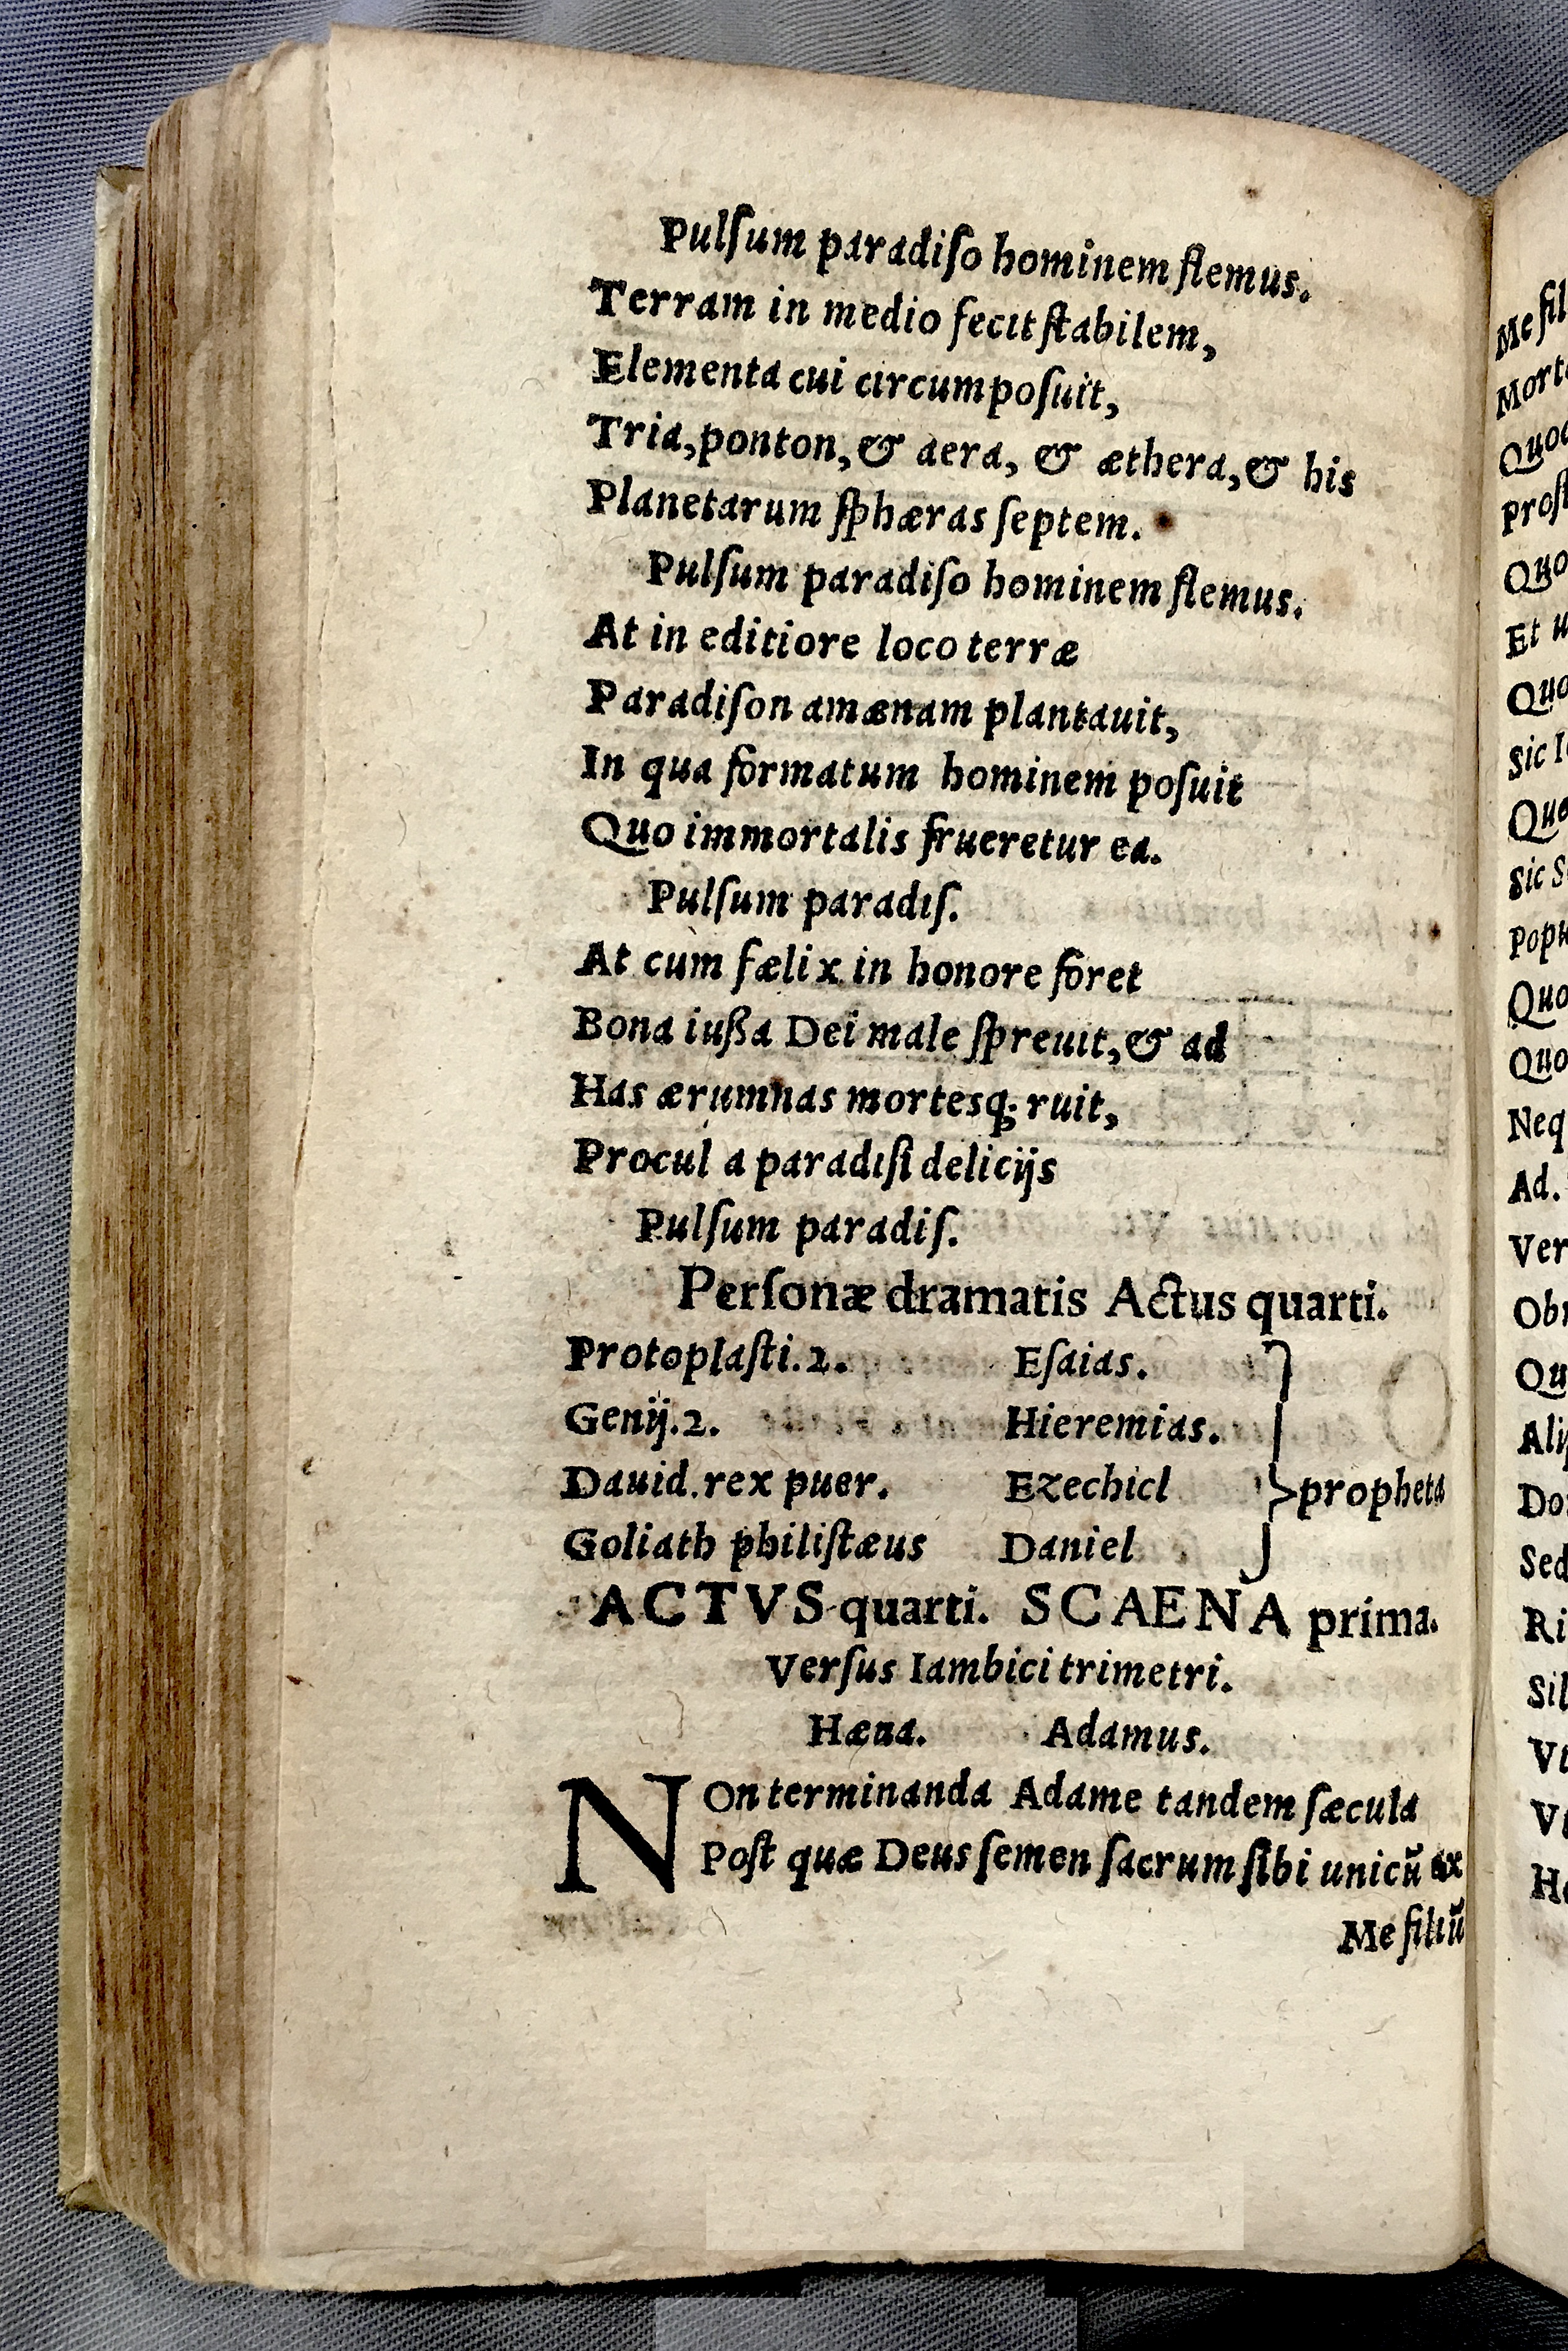 Pulſum paradiſo hominem flemus.
Terram in medio fecit ſtabilem,
Elementa cui circumpoſuit,
Tria, ponton, & aera, & æthera, & his
Planetarum ſphæras ſeptem.
Pulſum paradiſo hominem flemus.
At in editiore loco terræ
Paradiſon amœnam plantauit,
In qua formatum hominem poſuit
Quo immortalis frueretur ea.
Pulſum paradiſ.
At cum fælix in honore foret
Bona iußa Dei male ſpreuit, & ad
Has ærumnas mortesq; ruit,
Procul a paradiſi delicijs
Pulſum paradiſ.
Perſonæ dramatis Actus quarti.
Protoplaſti. 2. Eſaias.
Genij. 2. Hieremias.
Dauid. rex puer. Ezechiel propheta
Goliath philiſtæus Daniel
ACTVS quarti. SCAENA prima.
Verſus Iambici trimetri.
Hæua. Adamus.
NOn terminanda Adame tandem ſæcula
Poſt quæ Deus ſemen ſacrum ſibi unicũ ex
Me filiũ
Me fil
Quo
Et u
Quo
Sic I
Que
Sic S
Popu
Quo
Quo
Neq
Ad.
Ver
Obr
Qu
Do
Sed
Ri
Sil